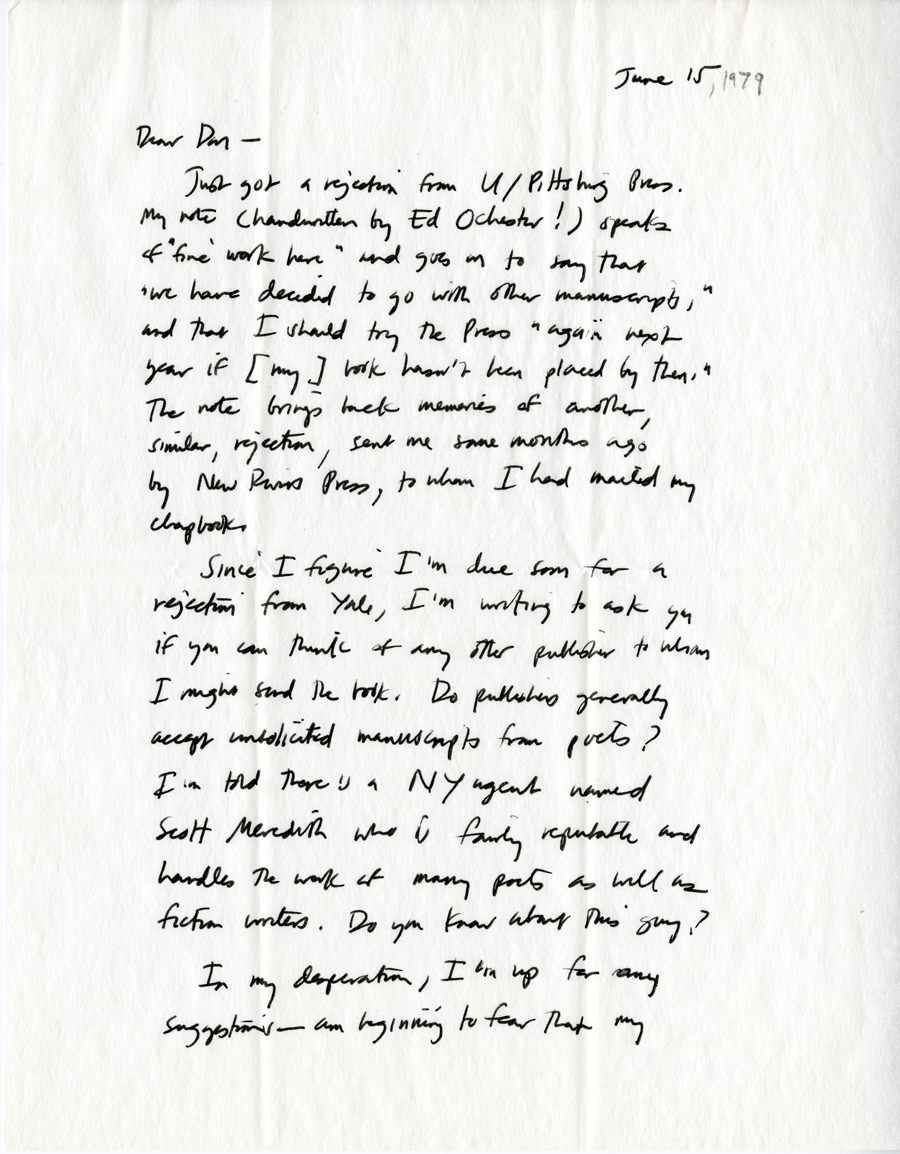 June 15, 1979
Dear Don —
Just got a rejection from U/Pittsburg Press.
My note (handwritten by Ed Ochester!) speaks
of "fine work here" and goes on to say that
"we have decided to go with other manuscripts,"
and that I should try the Press "again next
year if [my] book hasn't been placed by then."
The note brings back memories of another,
similar, rejection, sent me some months ago
by New Rivers Press, to whom I had mailed my
chapbook.
Since I figure I'm due soon for a
rejection from Yale, I'm writing to ask you
if you can think of any other publisher to whom
I might send the book. Do publishers generally
accept unsolicited manuscripts from poets?
I'm told there is a NY agent named
Scott Meredith who is fairly reputable and
handles the work of many poets as well as
fiction writers. Do you know about this guy?
In my desperation, I'm up for any
suggestions — am beginning to fear that my